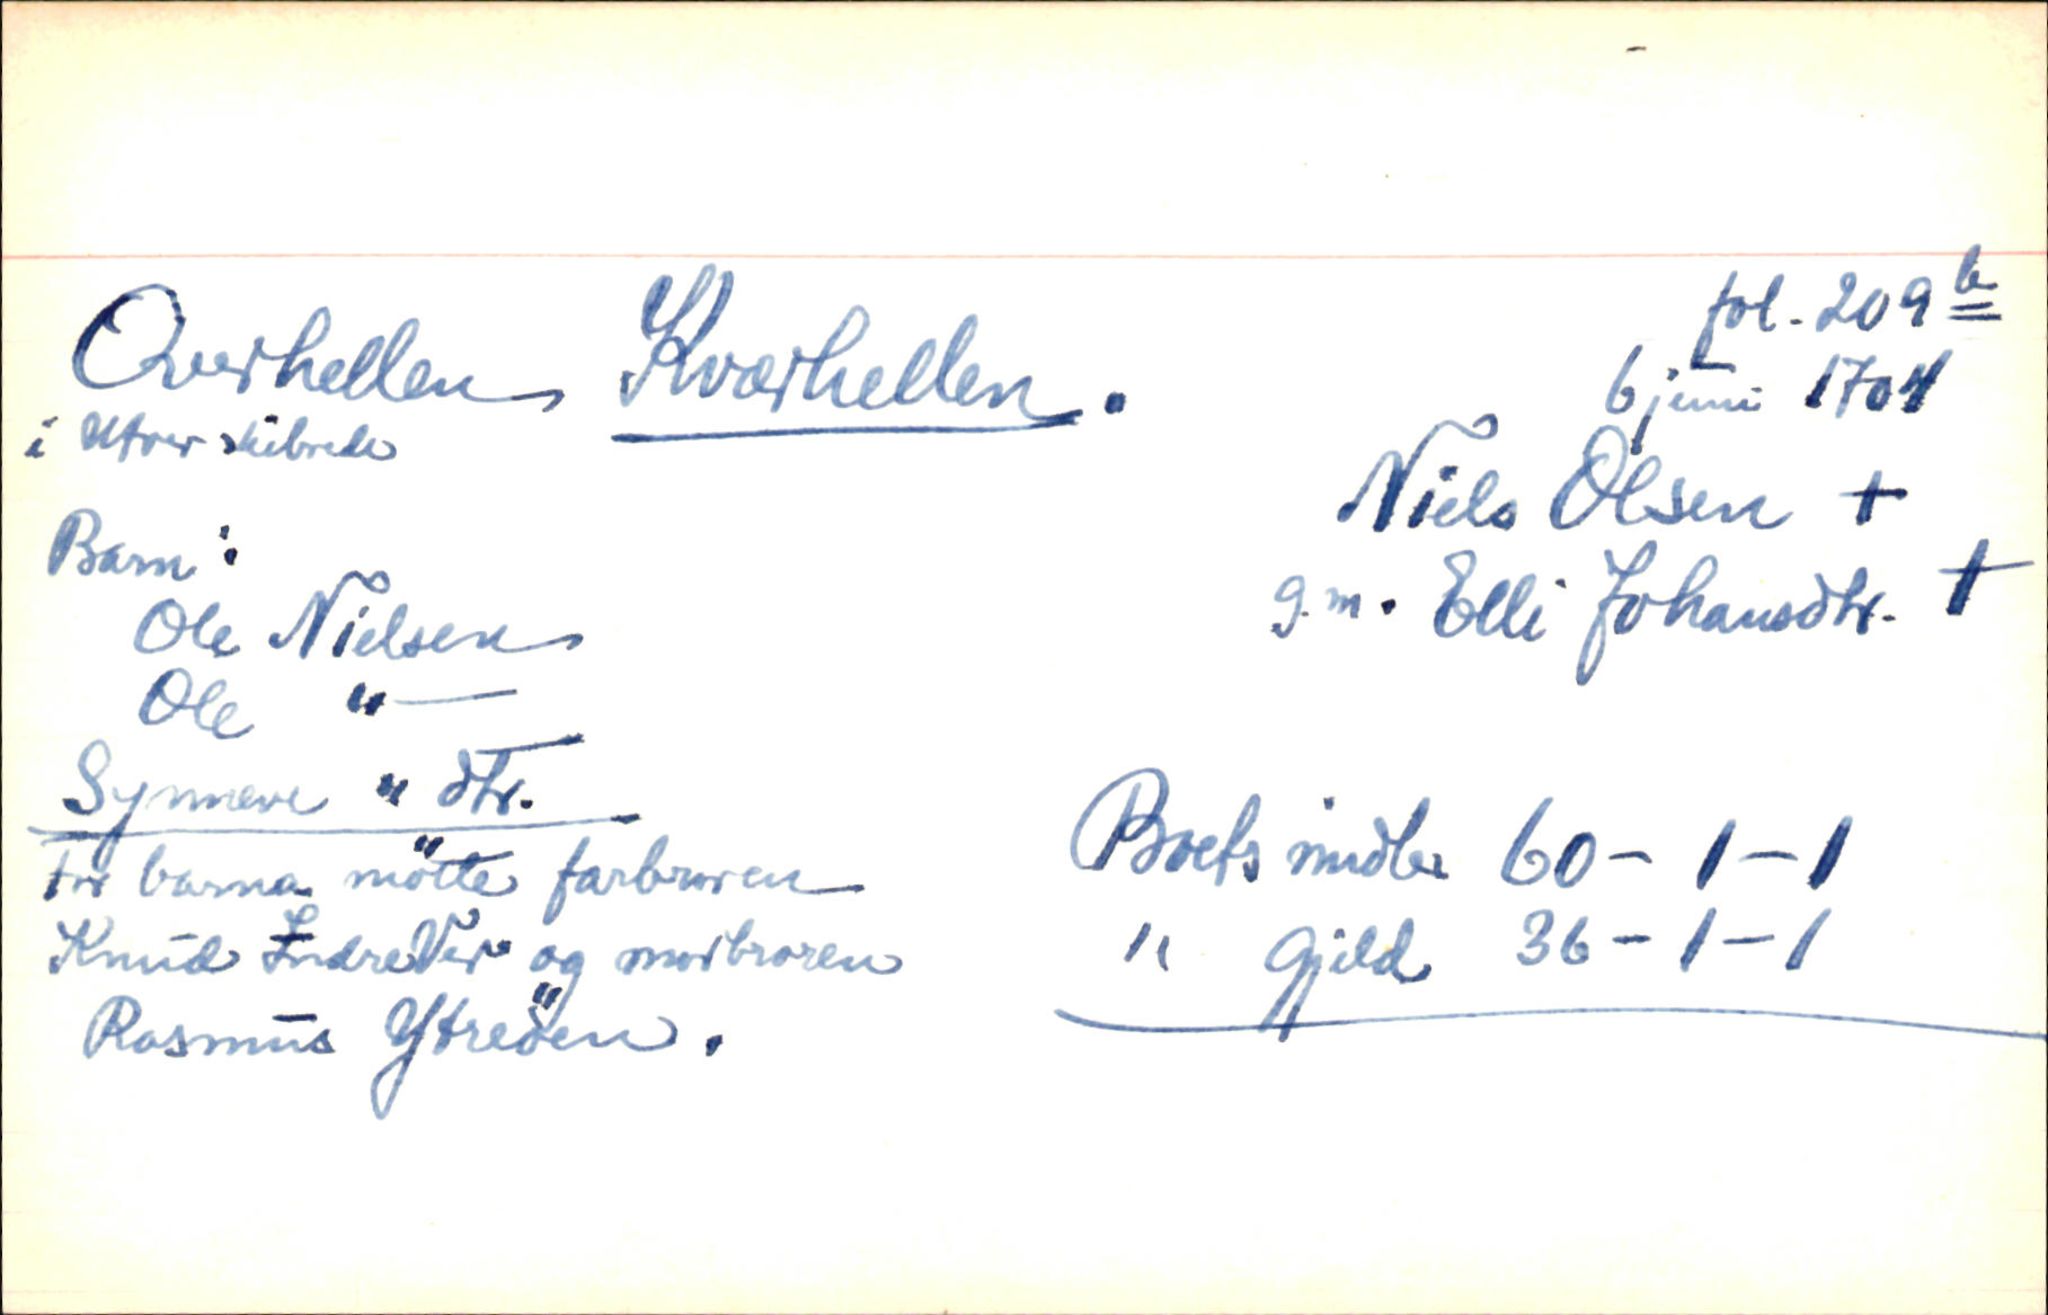 Qverhellen Kværhellen.
i Utver skibrede
fol. 209 b
6 juni 1704
Niels Olsen +
g.m. Elli Johansdtr. +
Barn:
Ole Nielsen
Ole "—
Synneve " dtr.
For barna mötte farbroren
Knud Indrevær og morbroren
Rasmus Ytreöen.
Boets midler 60-1-1
" Gjeld 36-1-1